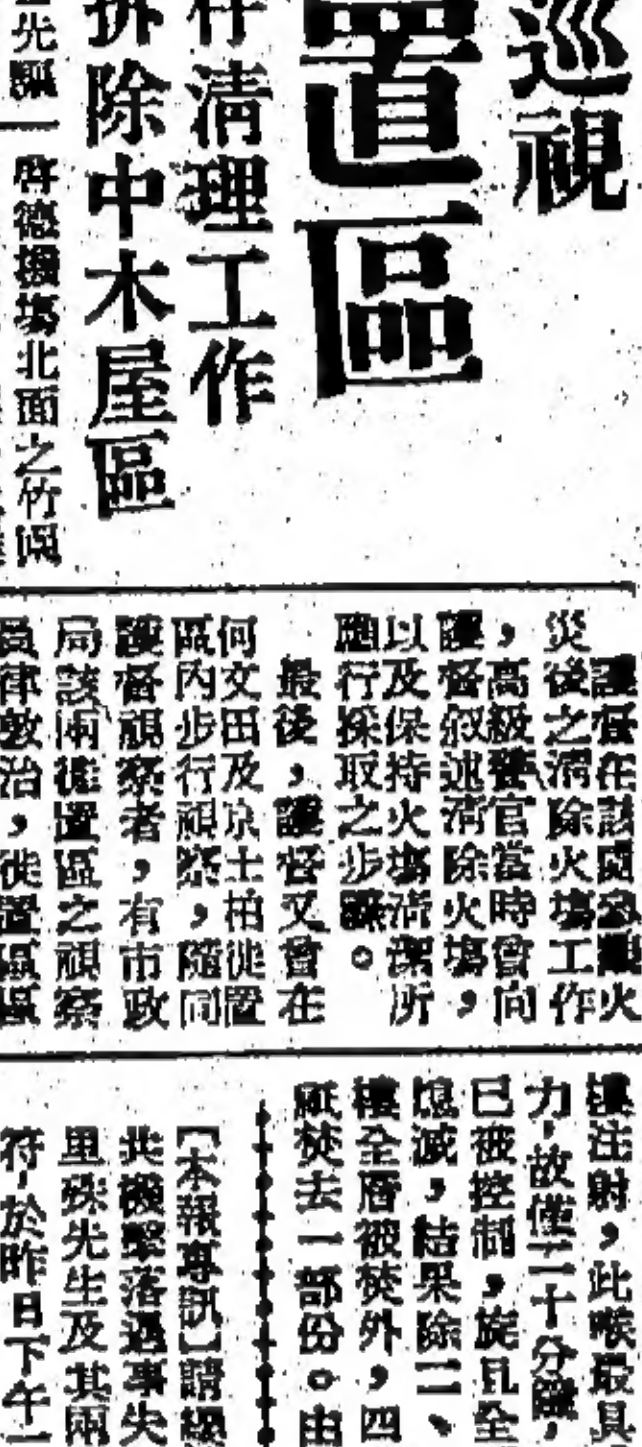 巡視
置區
仔清理工作
拆除中木屋區
光
啓德機場北面之竹園
護督在該園參觀火
災後之清除火場工作
，高級警官當時曾向
護督叙述清除火場，
以及保持火場清潔所
應行採取之步驟。
最後，護督又曾在
何文田及京士柏徙置
區內步行視察，隨同
護督視察者，有市政
局該兩徙置區之視察
員律敦治，徙置區
樓注射，此喉最具
力，故僅二十分鐘，
已被控制，旋且全
熄滅，結果除二、
樓全層被焚外，四
焚去一部份。由
【本報專訊】請
共機擊落遇事失
里殊先生及其兩
符，於昨日下午一